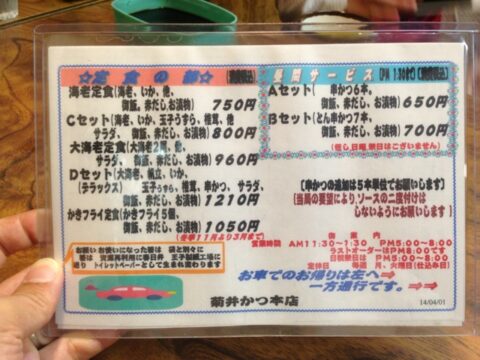 ☆定食の部☆ (消費税込)
海老定食(海老、いか、他、
御飯、赤だし、お漬物) 750円
Cセット(海老、いか、玉子うすら、椎茸、他
サラダ、御飯、赤だし、お漬物) 800円
大海老定食(大海老2尾、他、
サラダ、御飯、赤だし、お漬物) 960円
Dセット(大海老、帆立、いか、
(デラックス) 玉子うすら、椎茸、串かつ、サラダ、
御飯、赤だし、お漬物) 1210円
かきフライ定食(かきフライ5個、
御飯、赤だし、お漬物) 1050円
(冬季11月より3月まで)
お願い お使いになった箸は 袋と別々に
箸は 資源再利用に春日井 王子製紙工場に
送り トイレットペーパーとして生まれ変わります
昼間サービス (PM 1:30まで) (消費税込)
Aセット( 串かつ6本、
御飯、赤だし、お漬物) 650円
Bセット(とん串かつ7本、
御飯、赤だし、お漬物) 700円
(但し日曜、祭日はございません)
[串かつの追加は5本単位でお願いします]
[当局の要望により、ソースの二度付けは
しないようにお願いします]
御案内
営業時間 AM11:30~1:30 PM5:00~8:00
ラストオーダーはPM8:00です
日祝祭日は PM5:00~8:00
定休日 毎週 月、火曜日(仕込み日)
お車でのお帰りは左へ⇒
一方通行です。⇒⇒
菊井かつ本店
14/04/01